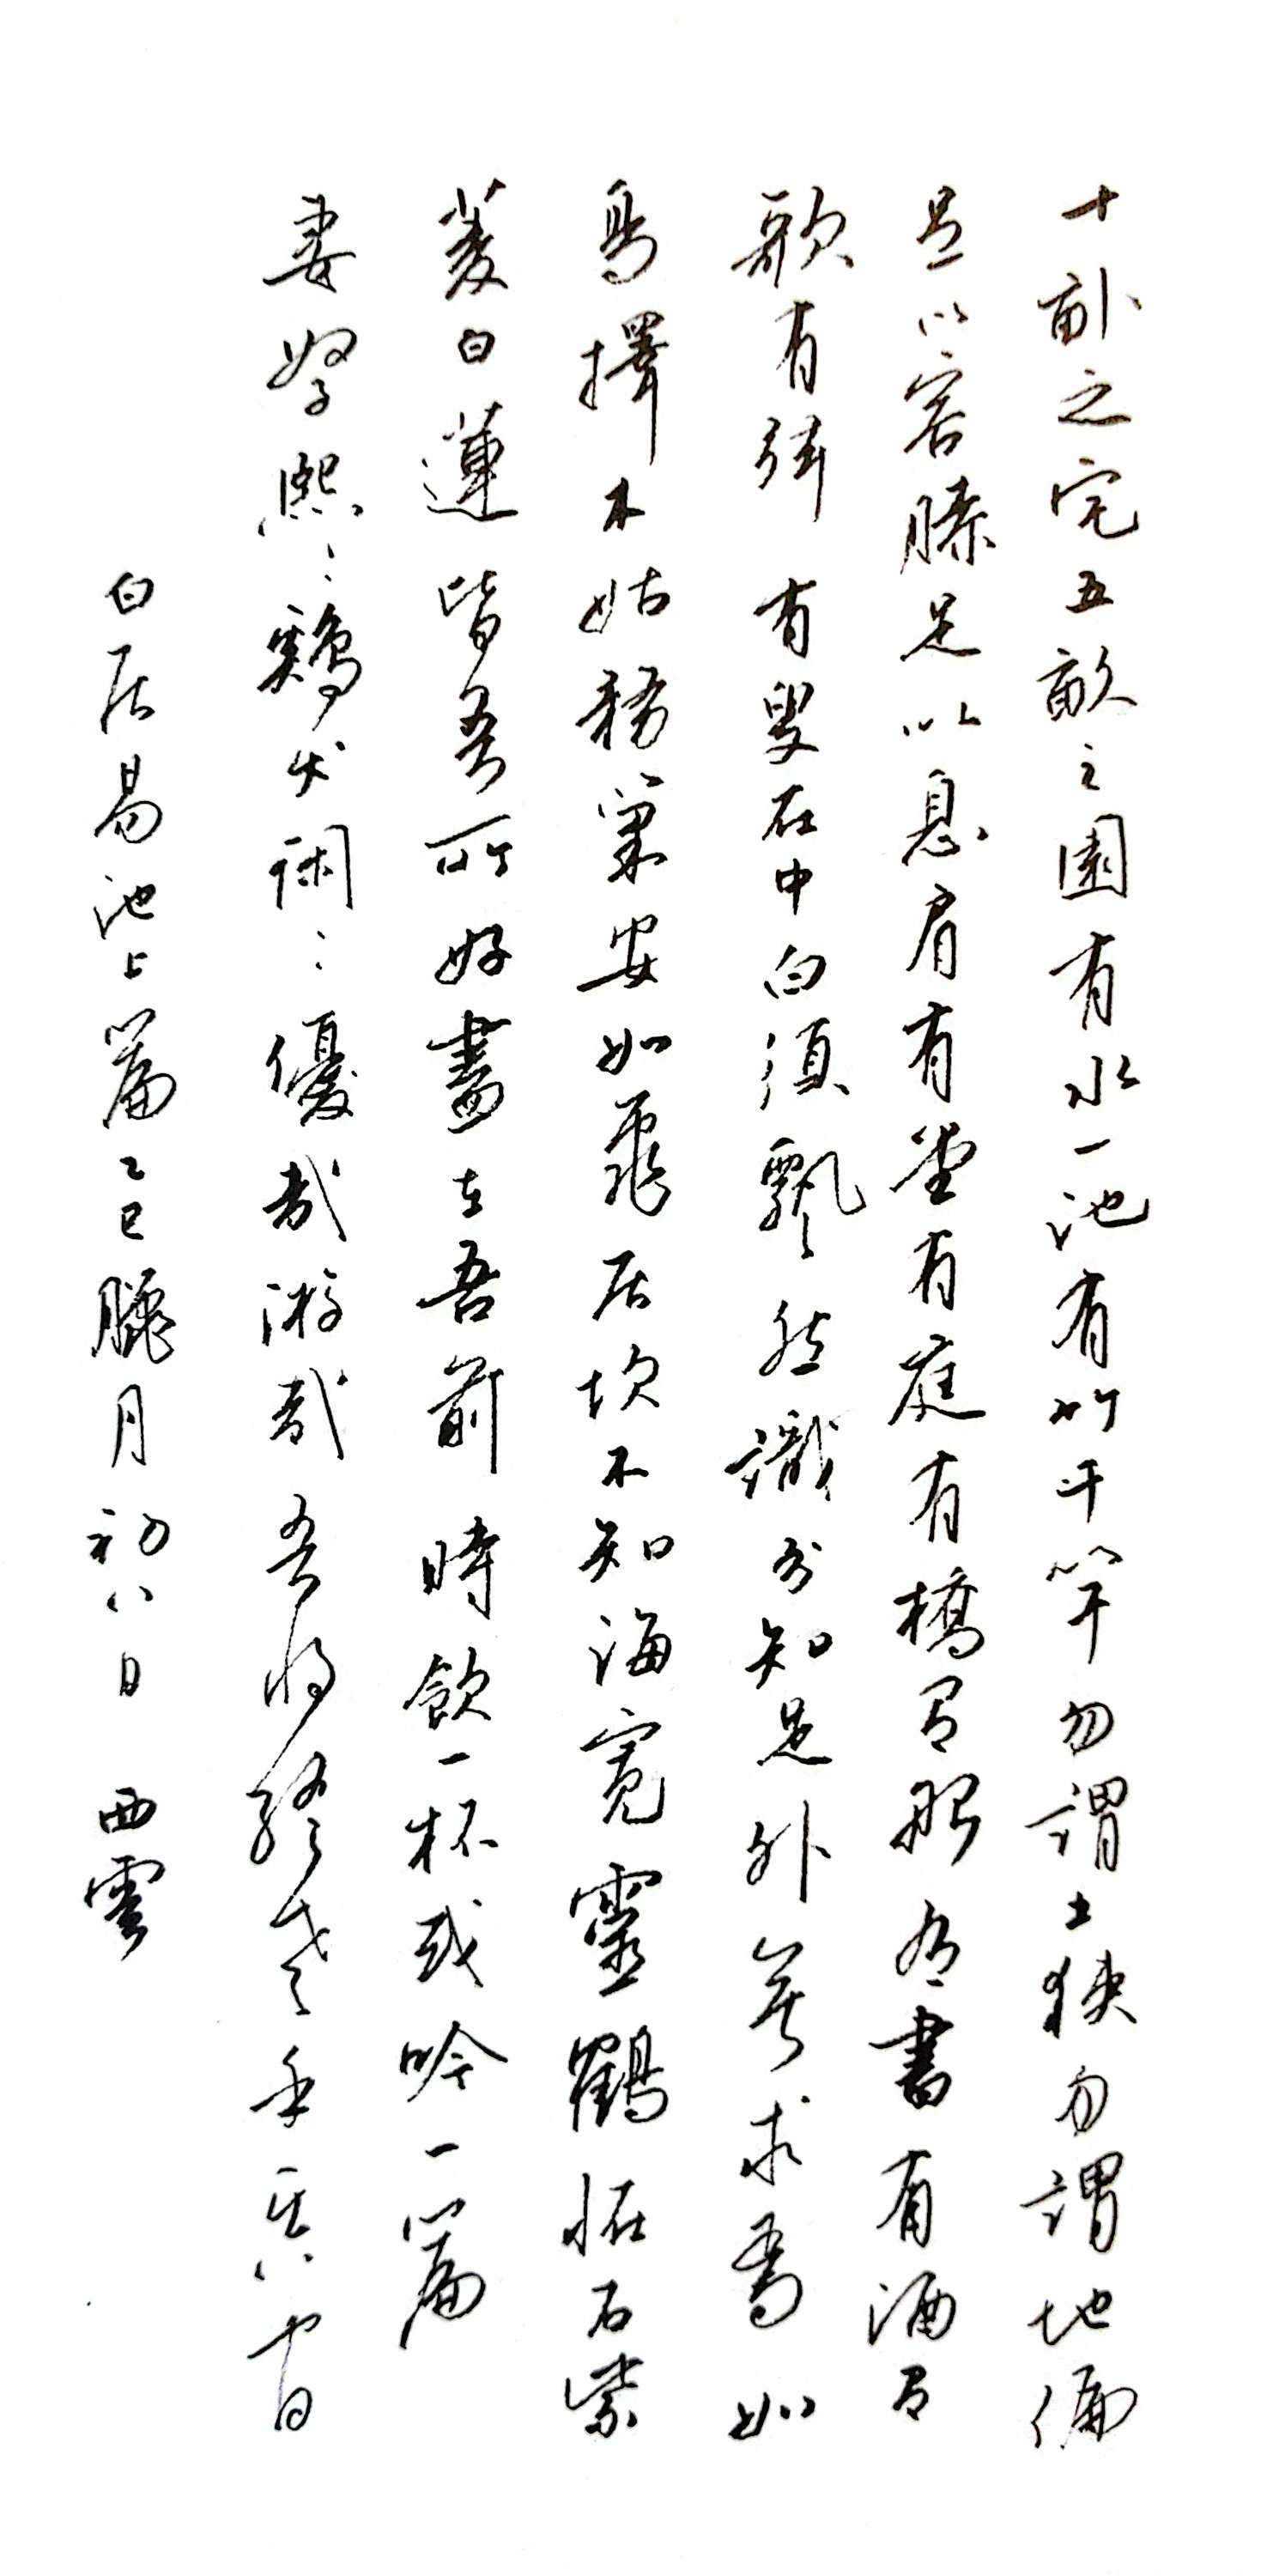 十畝之宅五畝之園有水一池有竹千竿勿謂土狹勿謂地偏
足以容膝足以息肩有堂有庭有橋有船有書有酒有
歌有弦有叟在中白須飄然識分知足外無求焉如
鳥擇木姑務巢安如龜居坎不知海寬靈鶴怪石紫
菱白蓮皆吾所好盡在吾前時飲一杯或吟一篇
妻孥熙〻鷄犬閑〻優哉游哉吾將終老乎其間
白居易池上篇乙巳臘月初八日 西雲